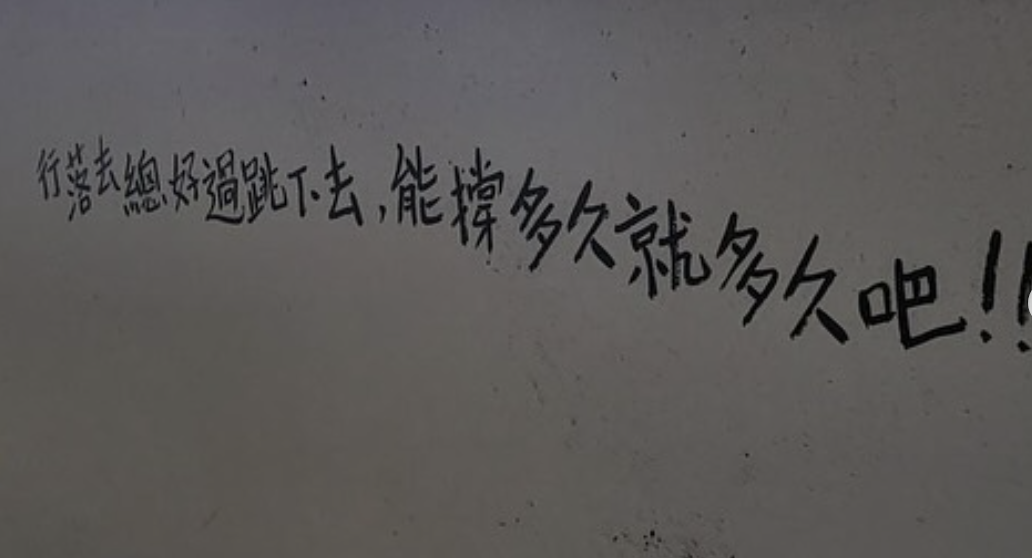 行落去總好過跳下去,能撐多久就多久吧!!